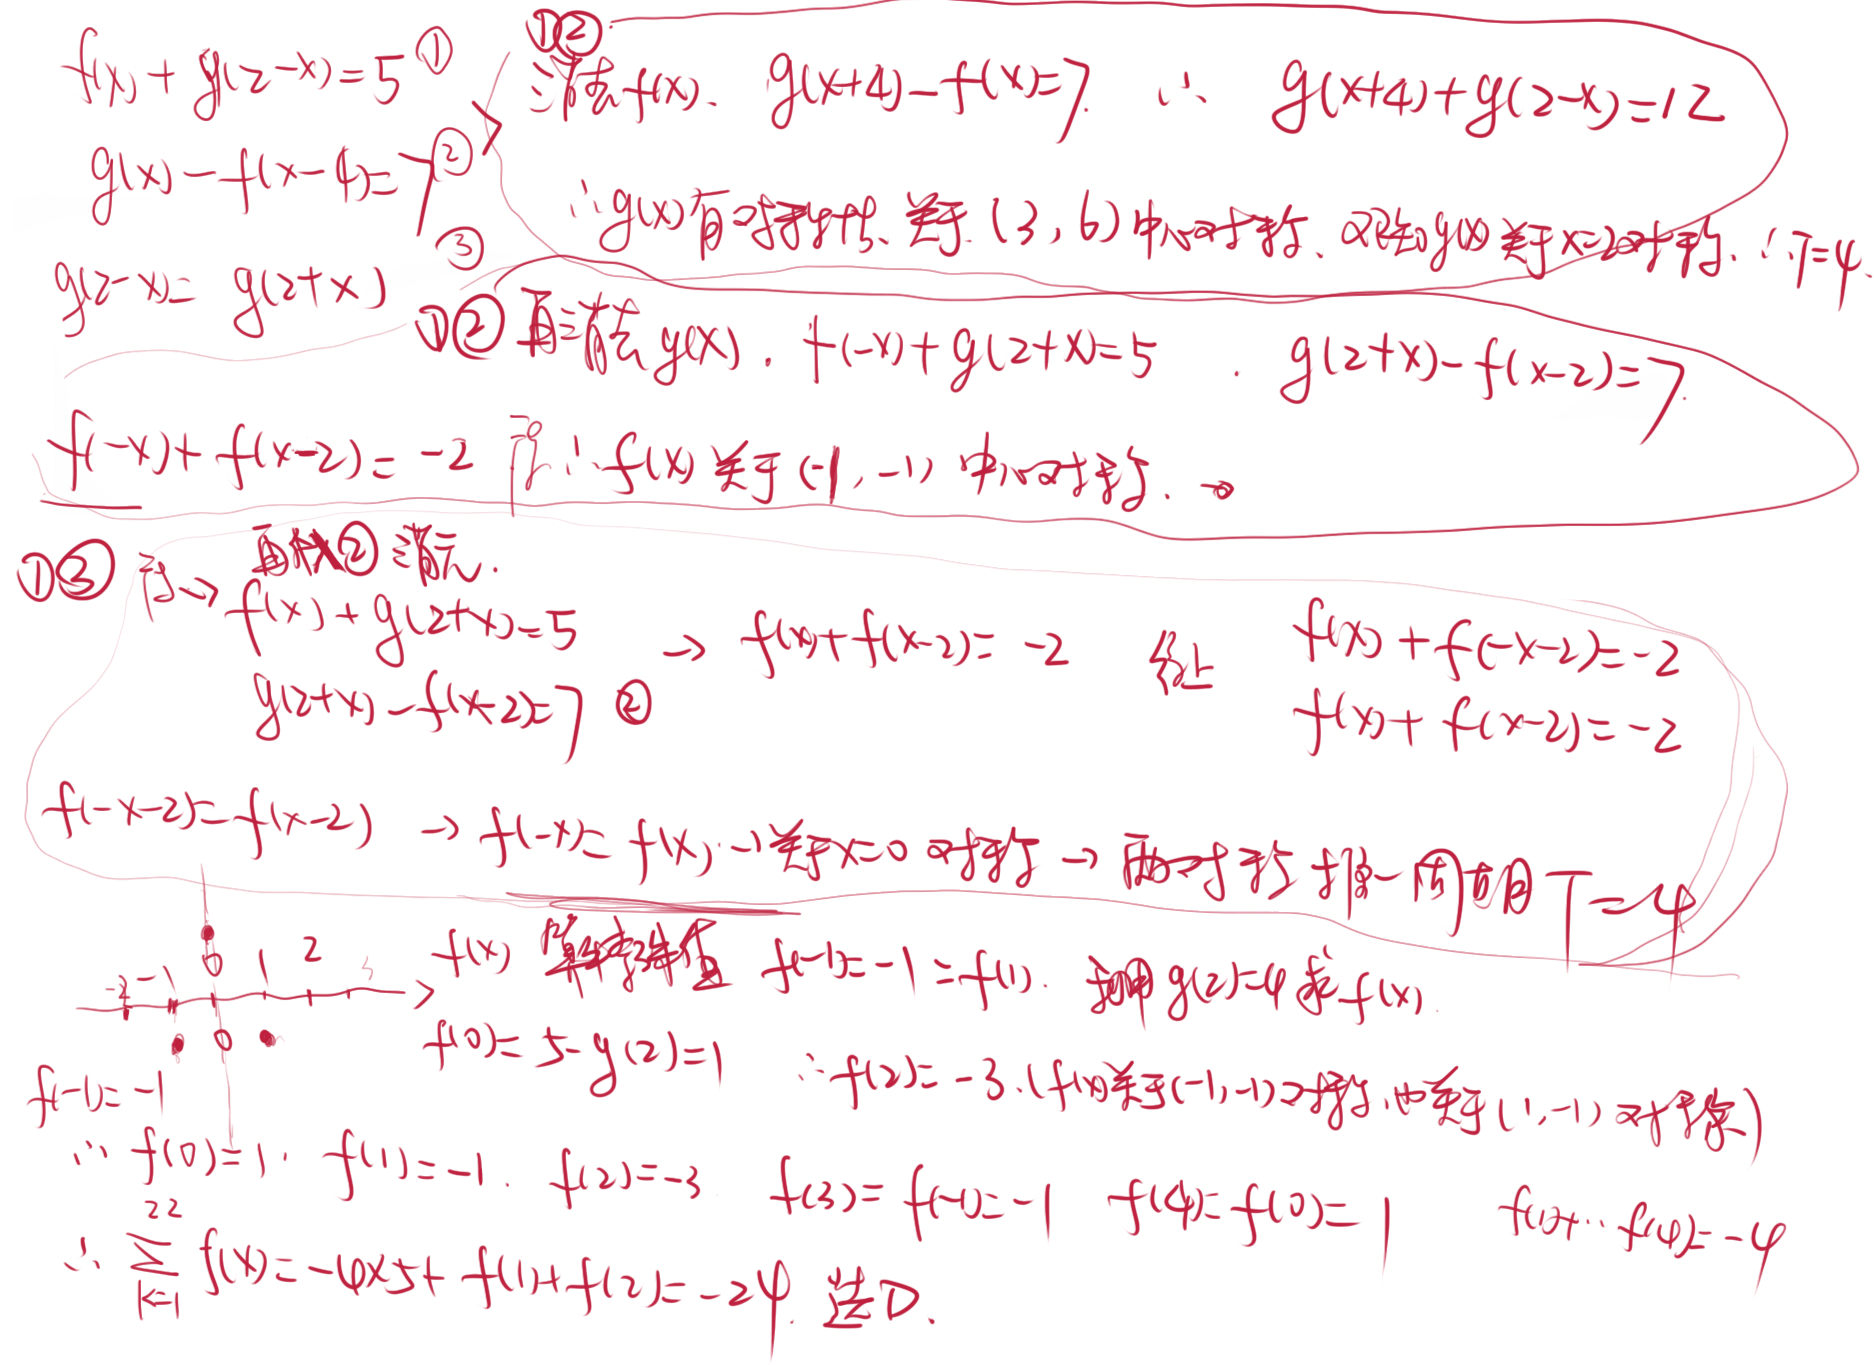 f(x)+g(2-x)=5 ①
g(x)-f(x-4)=7 ②
g(2-x)=g(2+x) ③
①② 消去f(x). g(x+4)-f(x)=7. ∴ g(x+4)+g(2-x)=12
∴g(x)有对称性、关于(3,6)中心对称、又已知g(x)关于x=2对称. ∴T=4.
①② 再消去g(x). f(-x)+g(2+x)=5. g(2+x)-f(x-2)=7.
f(-x)+f(x-2)=-2 即∴f(x)关于(-1,-1)中心对称. →
①③ 得→ 再找②消元.
f(x)+g(2+x)=5
g(2+x)-f(x-2)=7 ②
→ f(x)+f(x-2)=-2 综上
f(x)+f(-x-2)=-2
f(x)+f(x-2)=-2
f(-x-2)=f(x-2) → f(-x)=f(x) →关于x=0对称→两对称推一周期T=4
-2 -1 0 1 2 3
0
f(-1)=-1
f(x) 算特殊值 f(-1)=-1=f(1). 利用g(2)=4求f(x).
f(0)=5-g(2)=1 ∴f(2)=-3.(f(x)关于(-1,-1)对称,也关于(1,-1)对称)
∴ f(0)=1. f(1)=-1. f(2)=-3 f(3)=f(-1)=-1 f(4)=f(0)=1 f(1)+…f(4)=-4
22
∴ ∑ f(x)=-4×5+f(1)+f(2)=-24. 选D.
k=1